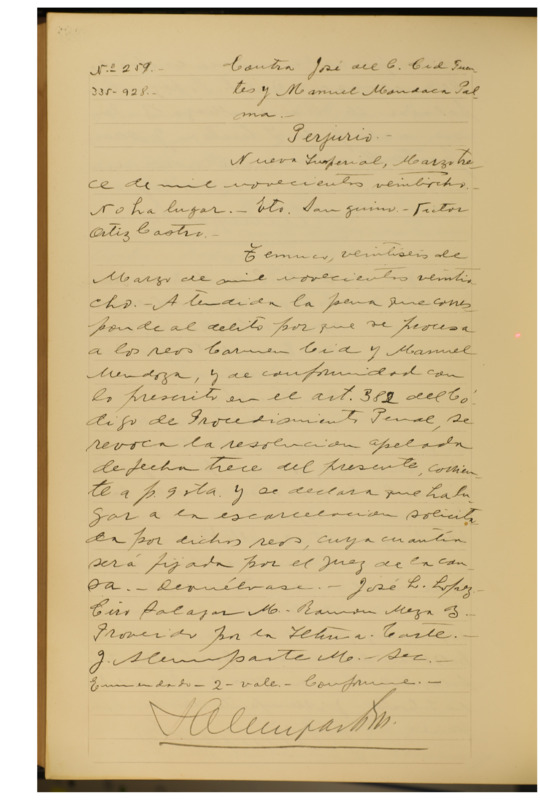 N.º 259.- Contra José del C. Cid Fuen
335-928.- tes y Manuel Mendoza Pal
ma.-
Perjurio.-
Nueva Imperial, Marzo tre-
ce de mil novecientos veintiocho.-
No ha lugar.- Eto. Sanguino.- Victor
Ortiz Castro.-
Temuco, veintiseis de
Marzo de mil novecientos veintio
cho.- Atendida la pena que corres-
ponde al delito por que se procesa
a los reos Carmen Cid y Manuel
Mendoza, y de conformidad con
lo prescrito en el art. 382 del Có-
digo de Procedimiento Penal, se
revoca la resolucion apelada
de fecha trece del presente, corrien-
te a f. 9 vta. y se declara que ha lu-
gar a la escarcelacion solicita
da por dichos reos, cuya cuantia
será fijada por el juez de la cau-
sa.- Devuélvase.- José L. Lopez-
Ciro Salazar M.- Ramon Meza B.-
Proveido por la Iltma. Corte.-
J. Alemparte M.- Sec.-
Enmendado-2-vale.- Conforme.-